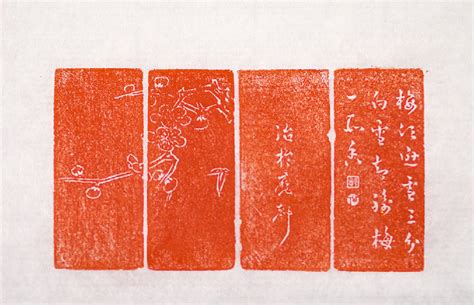 梅须逊雪三分
白雪却输梅
一段香
治於堯都